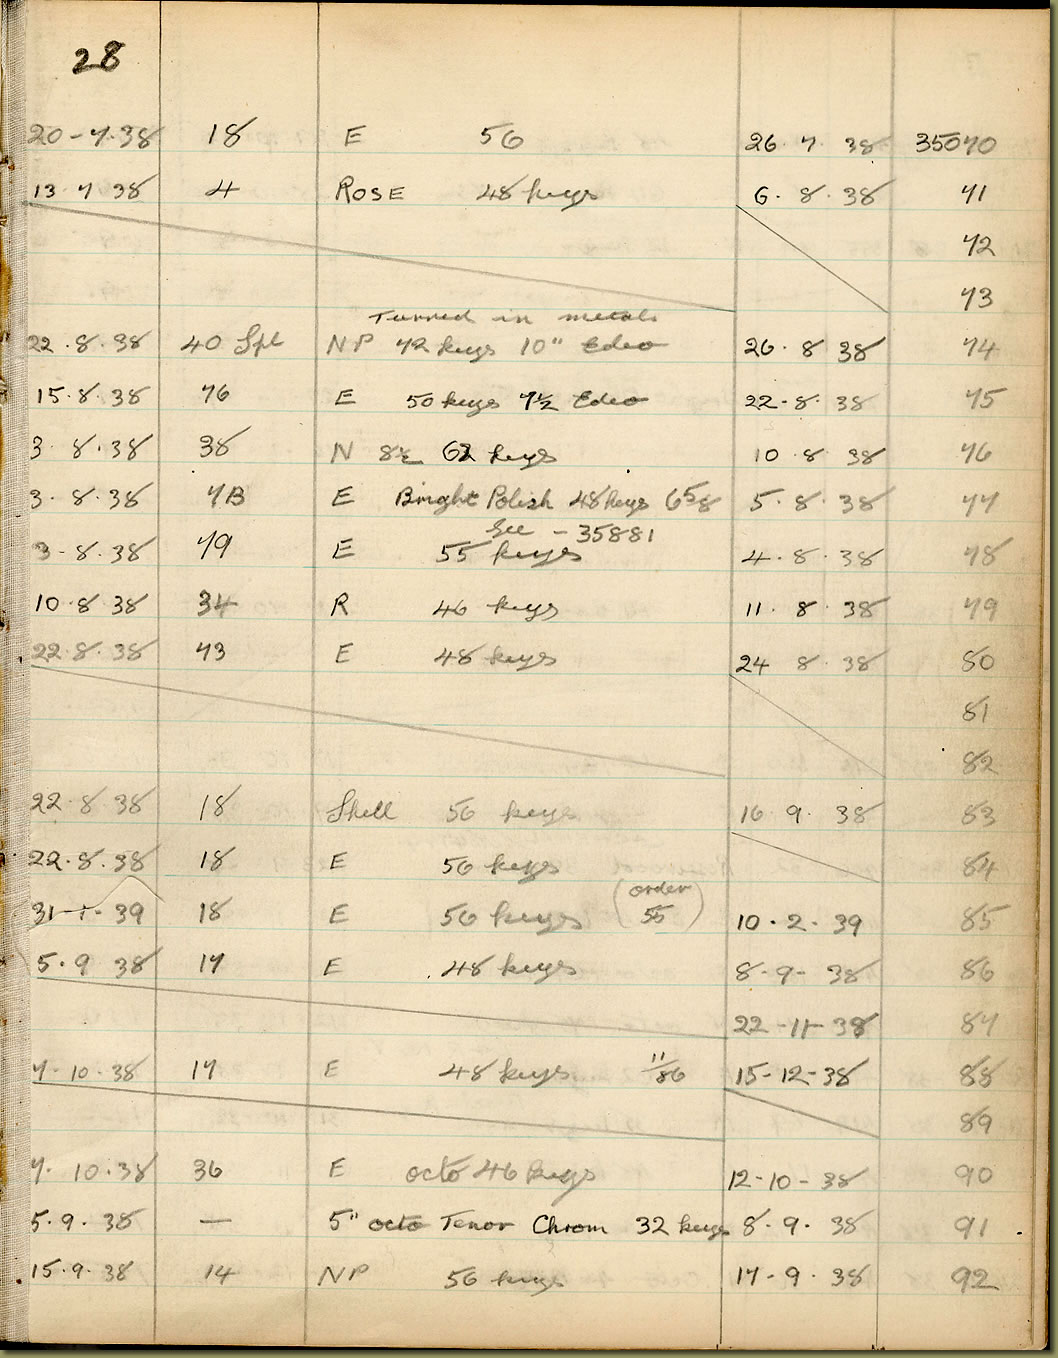 28
20-7-38 18 E 56 26.7.38 35070
13 7 38 4 ROSE 48 keys 6.8.38 71
72
73
Turned in metals
22.8.38 40 Spl NP 72 keys 10" Edeo 26.8 38 74
15.8.38 76 E 50 keys 7½ Edeo 22-8.38 75
3.8.38 38 N 8½ 62 keys 10.8.38 76
3.8.38 7B E Bright Polish 48 keys 6 5/8 5.8.38 77
See - 35881
3-8.38 79 E 55 keys 4.8.38 78
10.8 38 34 R 46 keys 11.8.38 79
22.8.38 73 E 48 keys 24 8.38 80
81
82
22.8 38 18 Shell 56 keys 16.9.38 83
22.8.38 18 E 56 keys 84
(order
31-1-39 18 E 56 keys 55) 10-2-39 85
5.9 38 17 E 48 keys 8-9-38 86
22-11-38 87
7-10-38 17 E 48 keys 11/86 15-12-38 88
89
7.10.38 36 E octo 46 keys 12-10-38 90
5.9.38 — 5" octo Tenor Chrom 32 keys 8.9.38 91
15.9.38 14 NP 56 keys 17-9.38 92